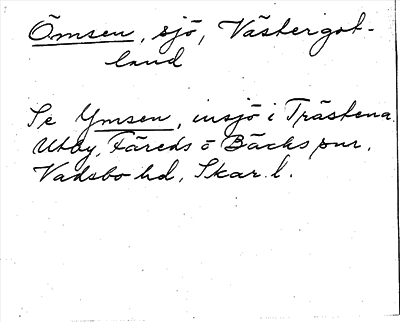 Ömsen, sjö, Västergot-
land
Se Ymsen, insjö i Trästena
Utby, Färeds o Bäcks snr,
Vadsbo hd, Skar. l.